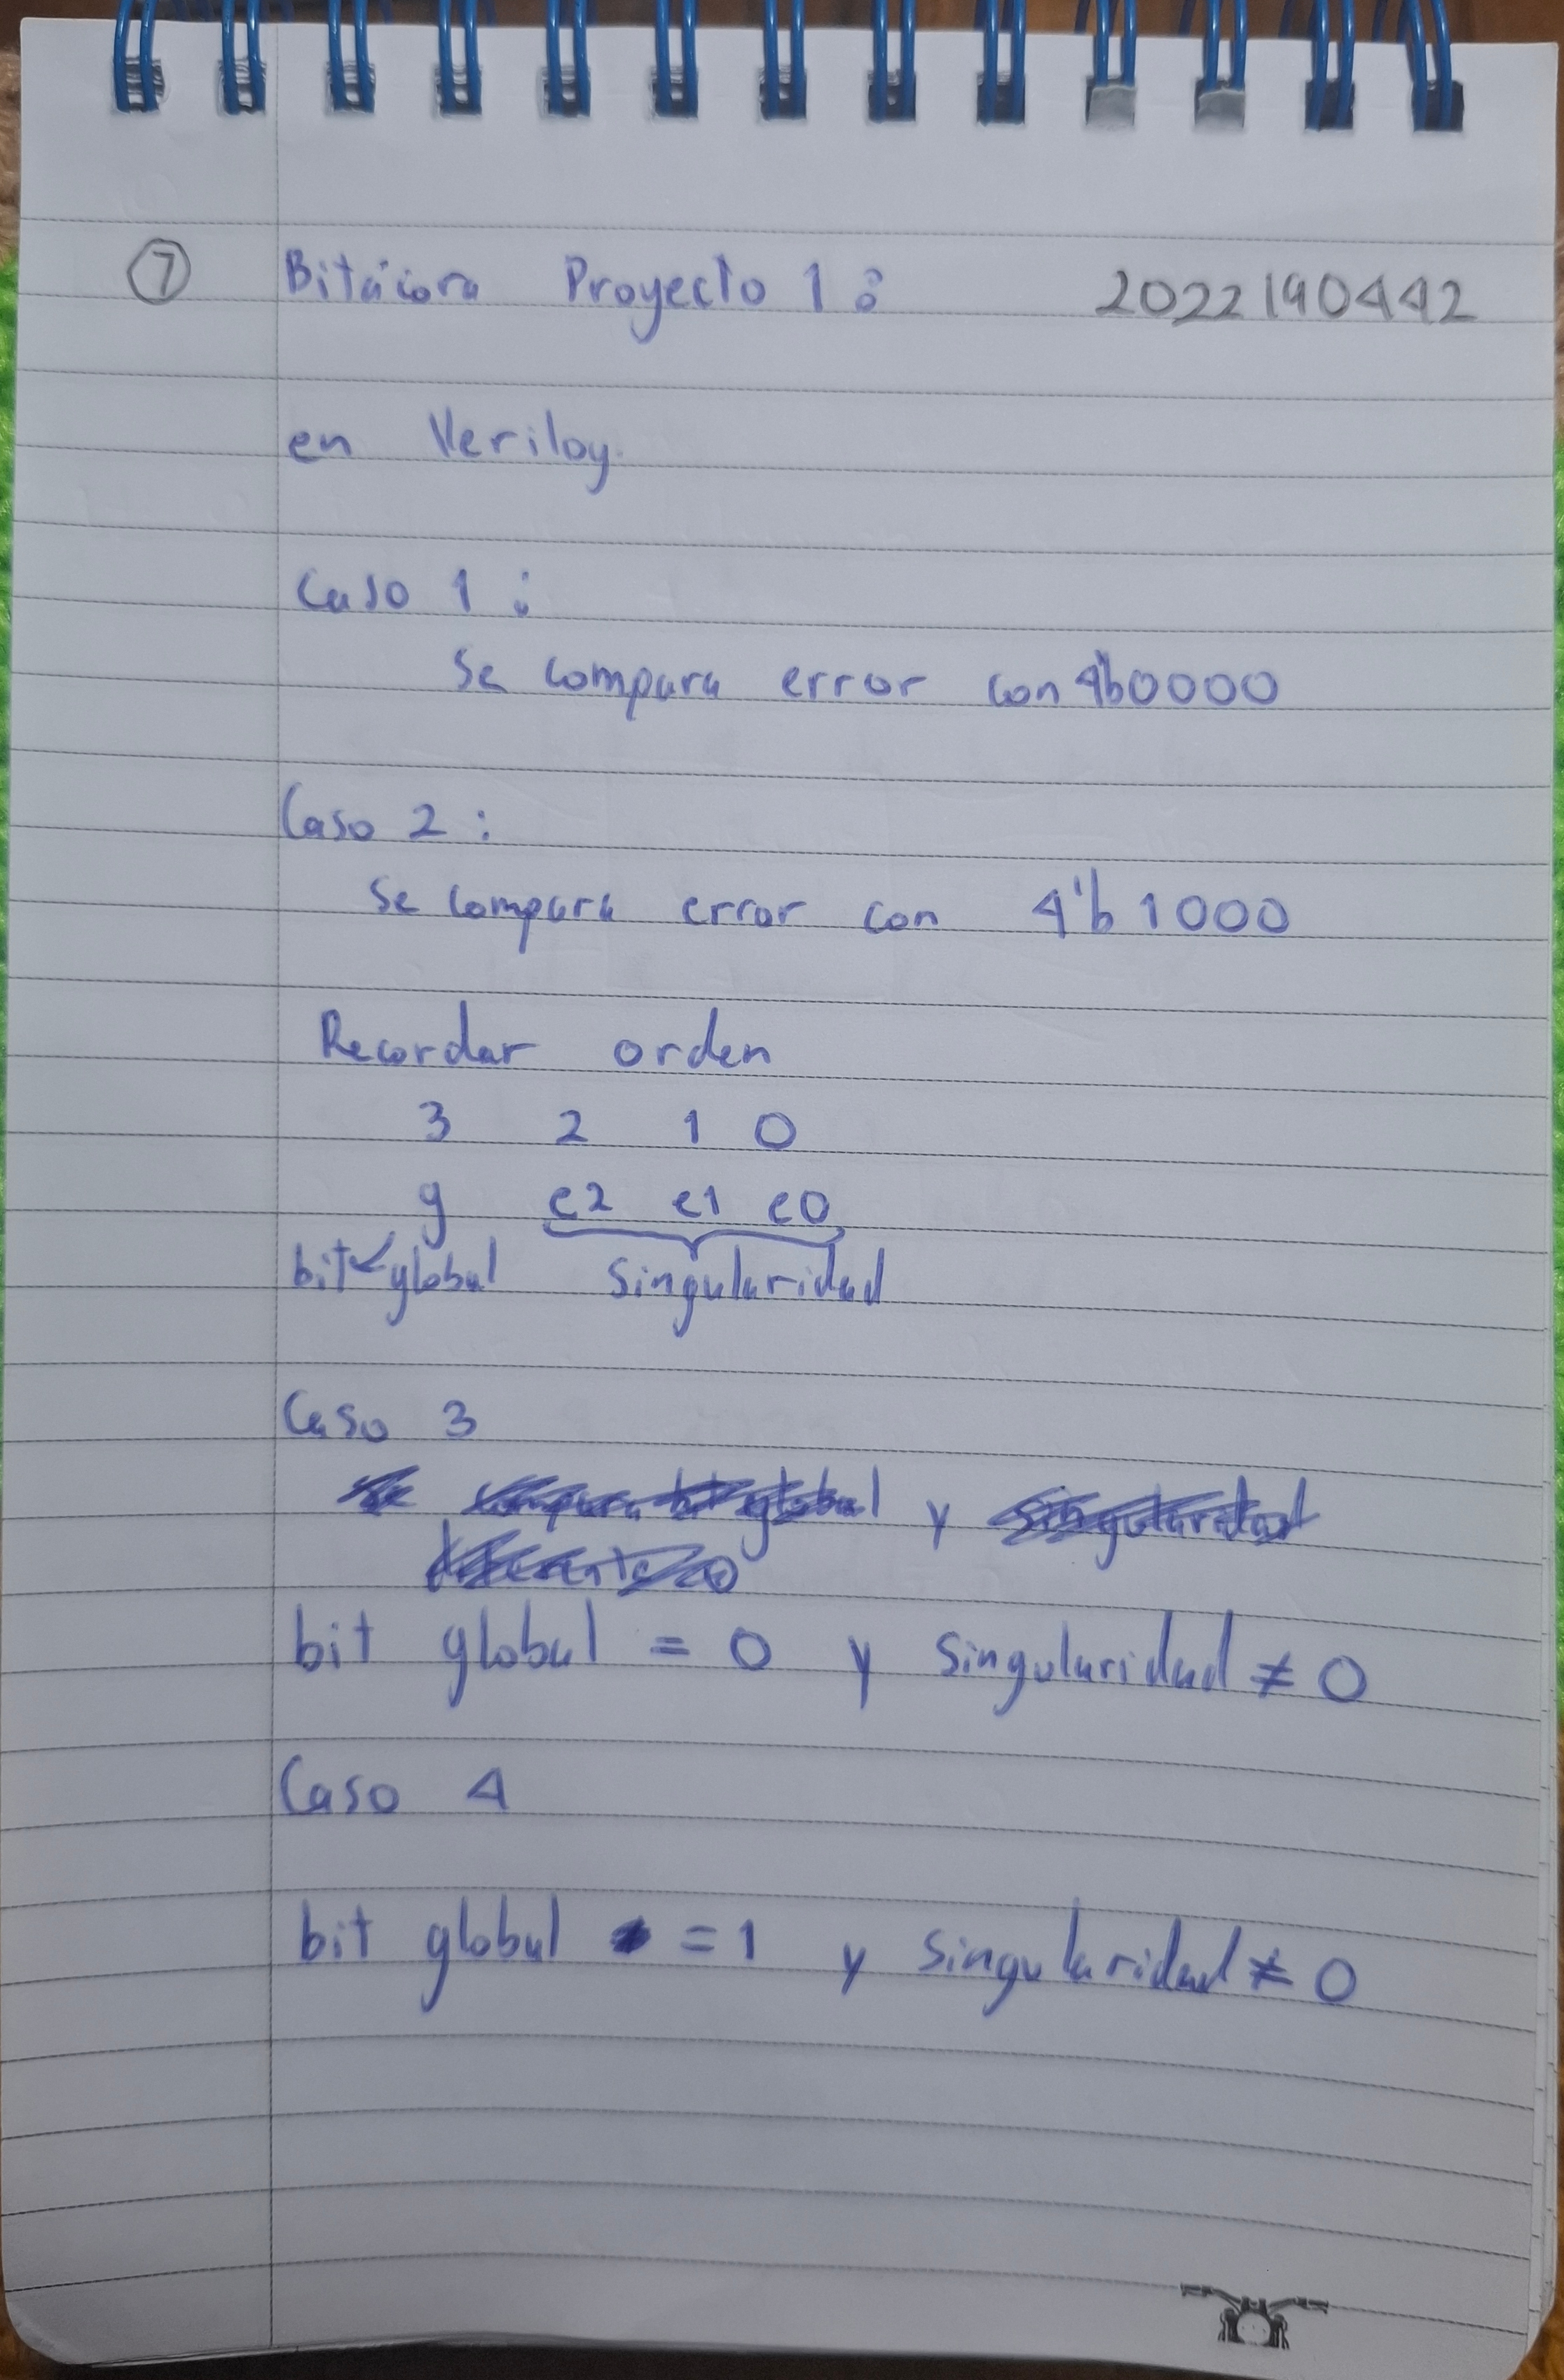 7 Bitácora Proyecto 1: 2022190442
en Verilog.
Caso 1:
Se compara error con 4'b0000
Caso 2:
Se compara error con 4'b 1000
Recordar orden
3 2 1 0
g e2 e1 e0
bit global singularidad
Caso 3
y
bit global = 0 y singularidad ≠ 0
Caso 4
bit global = 1 y singularidad ≠ 0